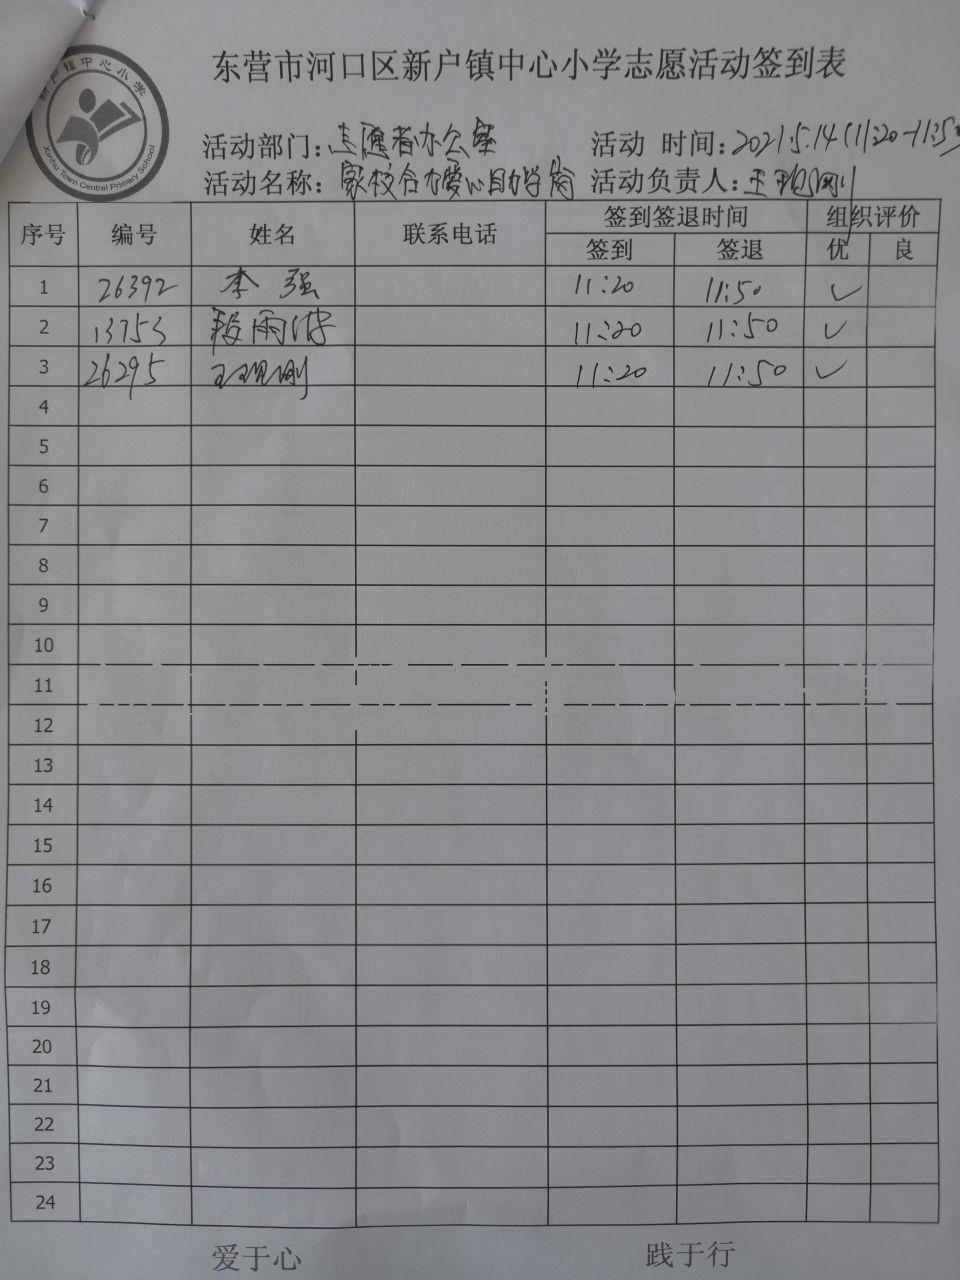 新户镇中心小学
Xinhu Town Central Primary School
东营市河口区新户镇中心小学志愿活动签到表
活动部门：志愿者办公室 活动 时间：2021.5.14（11:20-11:50
活动名称：家校合力爱心助学岗 活动负责人：王现刚
序号 编号 姓名 联系电话 签到签退时间 组织评价
签到 签退 优 良
1 26392 李强 11:20 11:50 ✓
2 13753 段雨 11:20 11:50 ✓
3 26295 王现刚 11:20 11:50 ✓
4
5
6
7
8
9
10
11
12
13
14
15
16
17
18
19
20
21
22
23
24
爱于心 践于行